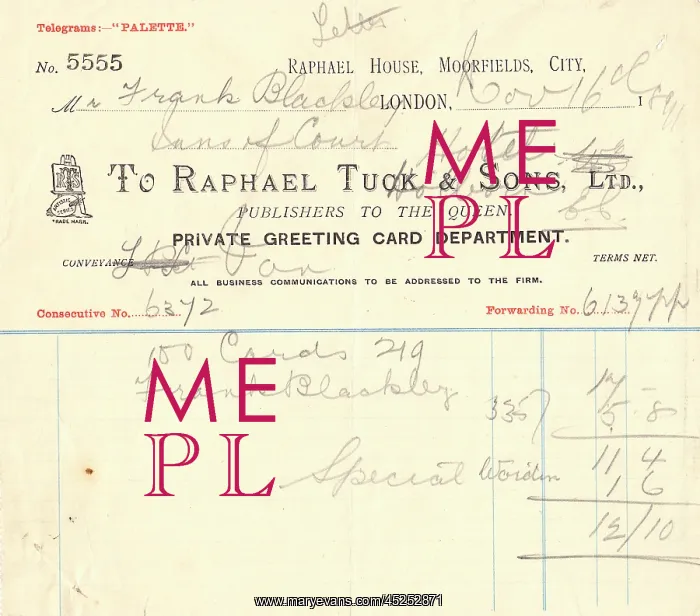 Letter
Telegrams:—"PALETTE."
No. 5555
RAPHAEL HOUSE, MOORFIELDS, CITY,
Mr Frank Blackley LONDON, Nov 16 1891
Inns of Court Hotel
TO RAPHAEL TUCK & SONS, LTD.,
TRADE MARK.
PUBLISHERS TO THE QUEEN.
PRIVATE GREETING CARD DEPARTMENT.
CONVEYANCE Van TERMS NET.
ALL BUSINESS COMMUNICATIONS TO BE ADDRESSED TO THE FIRM.
Consecutive No. 6372 Forwarding No. 6137 pp
100 Cards 219
Frank Blackley
17 -
33⅓ 5. 8
11 4
Special Wordin 1 6
12/10
ME
PL
ME
PL
www.maryevans.com/45252871